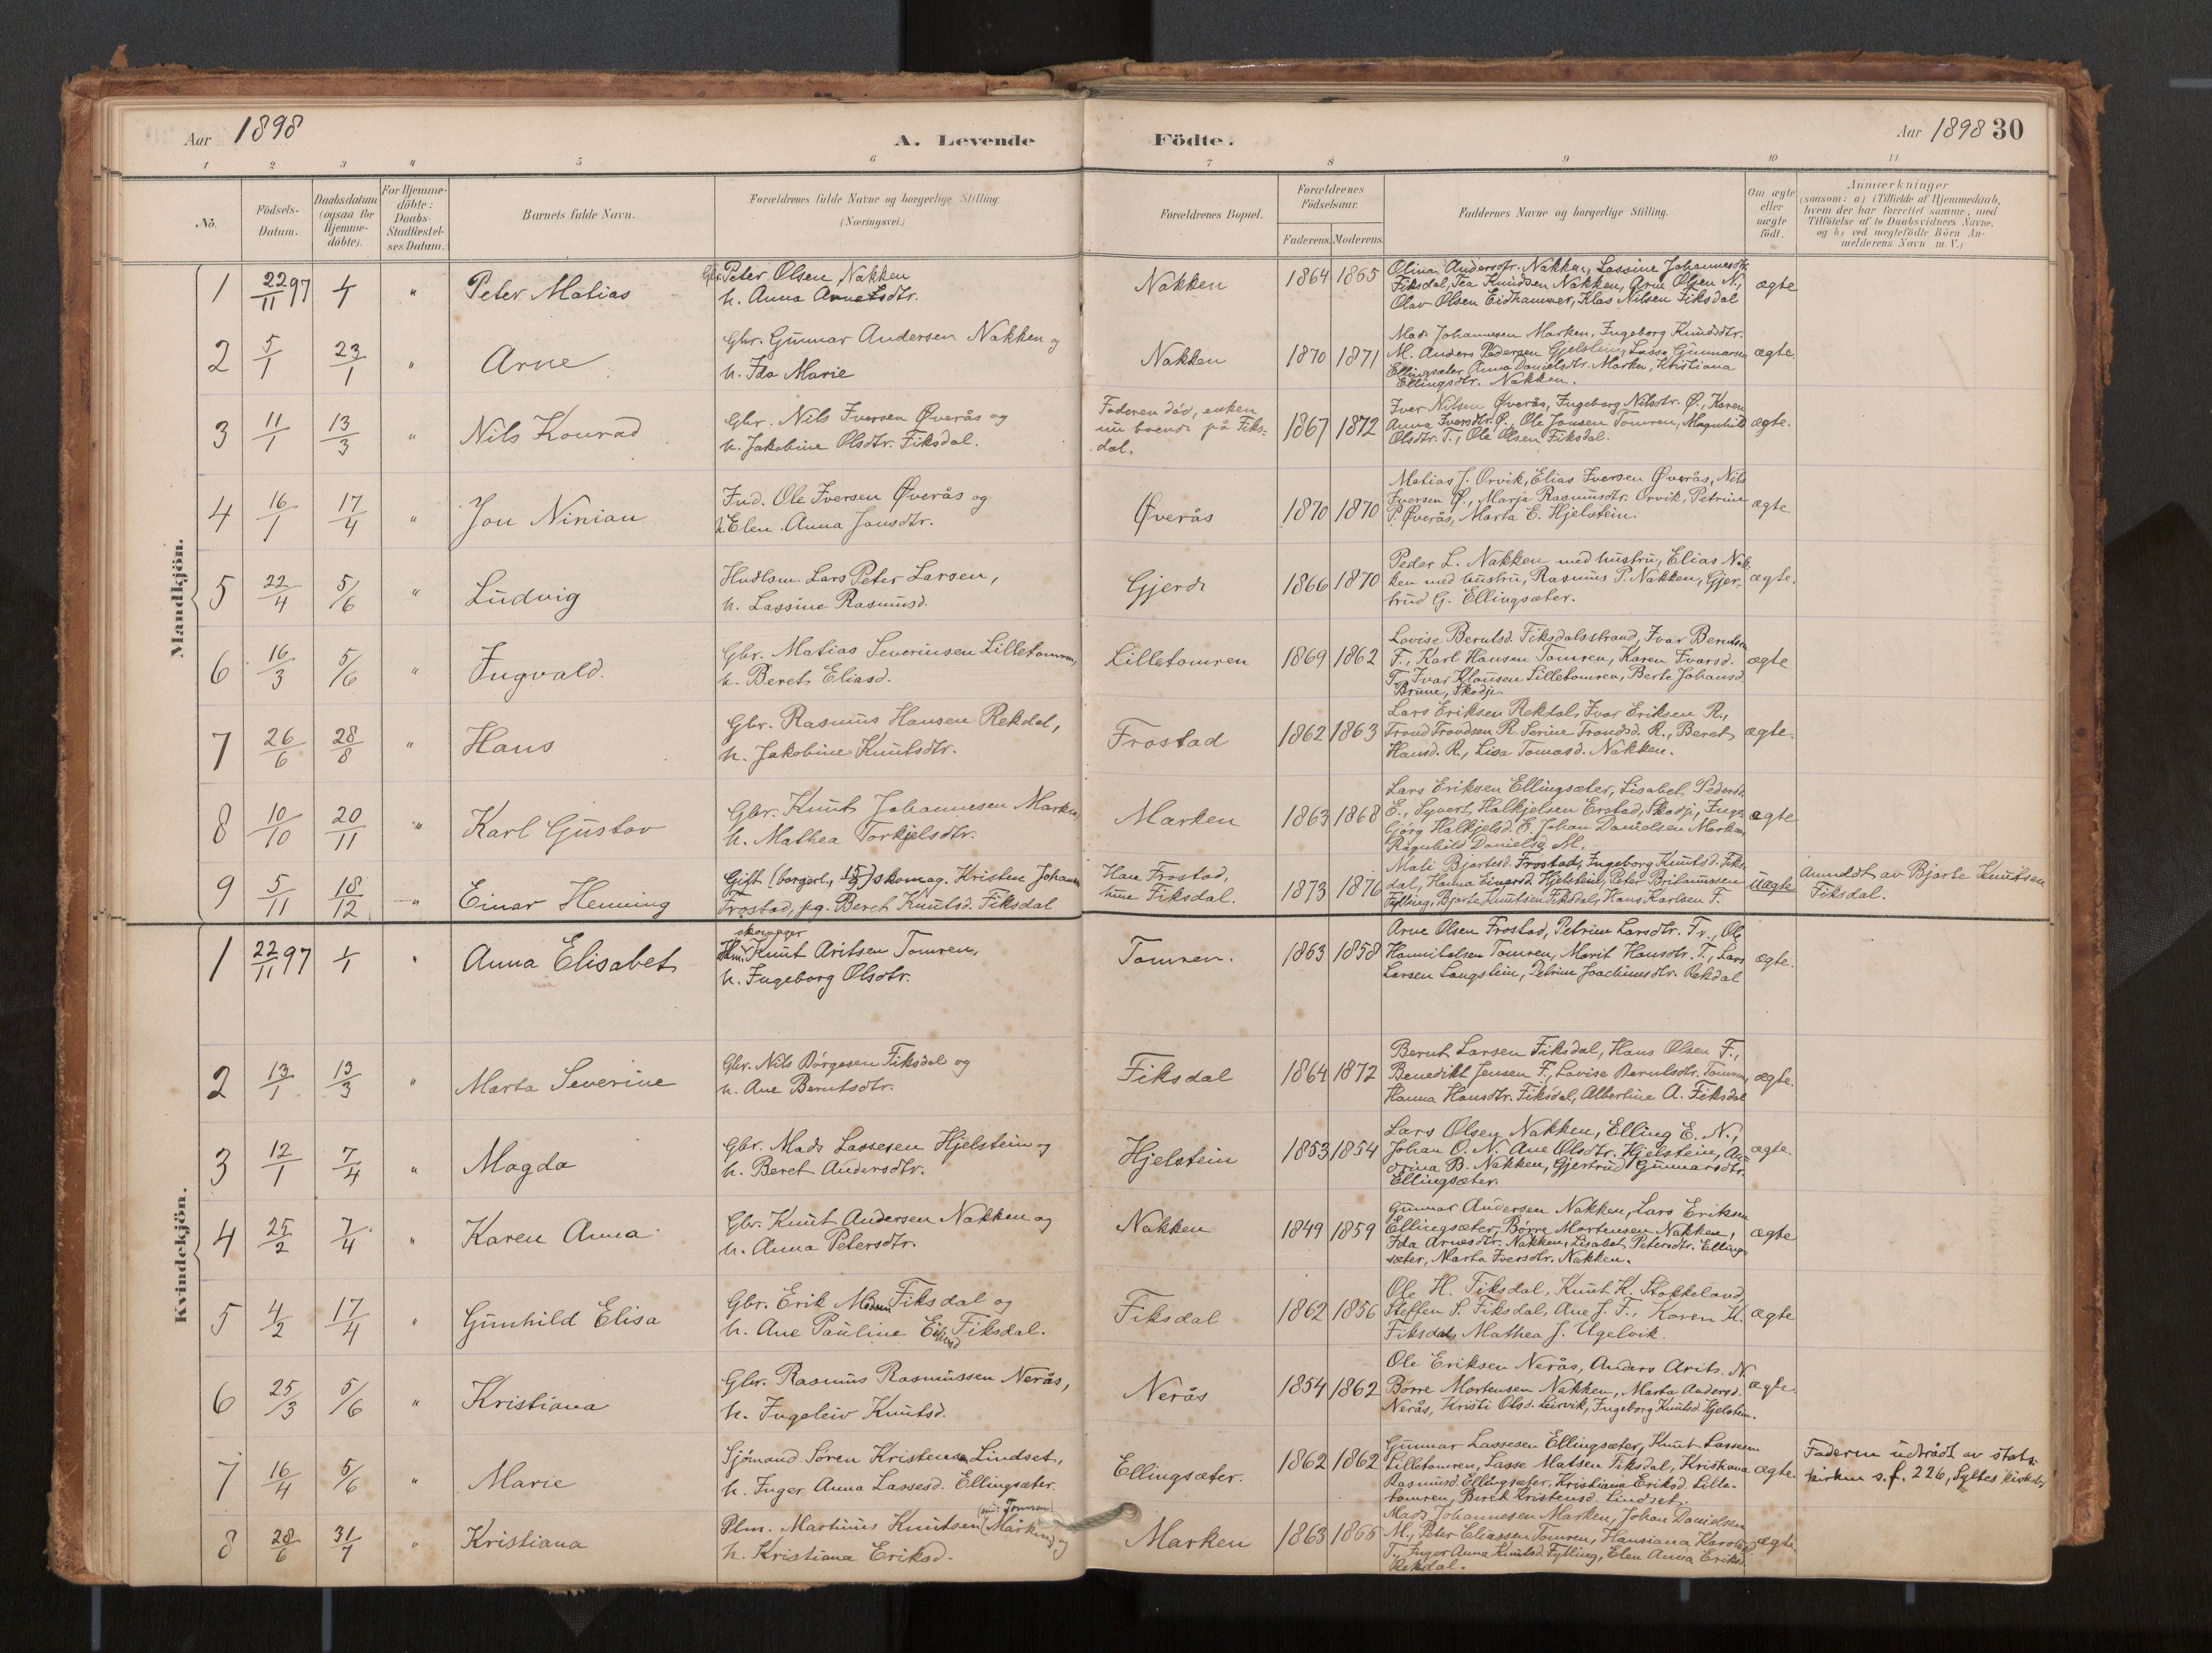 Aar 1898
A. Levende
Födte.
Aar 1898 30
1 2 3 4 5 6 7 8 9 10 11
No.
Födsels-
Datum.
Daabsdatum
(ogsaa for
Hjemme-
döbte).
For Hjemme-
döbte:
Daabs-
Stadfæstel-
ses Datum.
Barnets fulde Navn.
Forældrenes fulde Navne og borgerlige Stilling
(Næringsvei.)
Forældrenes Bopæl.
Forældrenes
Födselsaar.
Faderens. Moderens.
Faddernes Navne og borgerlige Stilling.
Om ægte
eller
uægte
födt.
Anmærkninger
(saasom: a) i Tilfælde af Hjemmedaab,
hvem der har forrettet samme, med
Tilföielse af to Daabsvidners Navne.
og b) ved uægtefödte Börn An-
melderens Navn m. V.)
Mandkjön.
1 22/11 97 1/1 " Peter Matias
Gbr. Peter Olsen Nakken
h. Anna Arnetsdtr.
Nakken 1864 1865
Olina Andersdtr. Nakken, Lassine Johannesdtr.
Fiksdal, Tea Knudsen Nakken, Arne Olsen N.,
Olav Olsen Eidhammer, Klas Nilsen Fiksdal
ægte
2 5/1 23/1 " Arne
Gbr. Gunnar Andersen Nakken og
h. Ida Marie
Nakken 1870 1871
Mads Johannesen Marken, Ingeborg Knudsdtr.
M. Anders Pedersen Gjelstein, Lasse Gunnarsen
Ellingsæter, Anna Danielsdtr. Marken, Kristiana
Ellingsdtr. Nakken.
ægte.
3 11/1 13/3 " Nils Konrad
Gbr. Nils Iversen Øverås og
h. Jakobine Olsdtr. Fiksdal.
Faderen död, enken
nu boende på Fiks-
dal.
1867 1872
Iver Nilsen Øverås, Ingeborg Nilsdtr. Ø., Karen
Anna Iversdtr. Ø., Ole Jonsen Tomren, Magnhild
Olsdtr. T., Ole Olsen Fiksdal.
ægte.
4 16/1 17/4 " Jon Ninian
Ind. Ole Iversen Øverås og
h. Elen Anna Jonsdtr.
Øverås 1870 1870
Matias J. Orvik, Elias Iversen Øverås, Nils
Iversen Ø., Marja Rasmusdtr. Orvik, Petrine
P. Øverås, Marta E. Hjelstein.
ægte
5 22/4 5/6 " Ludvig
Hudlsm. Lars Peter Larsen,
h. Lassine Rasmusd.
Gjerde 1866 1870
Peder L. Nakken med hustru, Elias Nak-
ken med hustru, Rasmus P. Nakken, Gjer-
trud G. Ellingsæter.
ægte.
6 16/3 5/6 " Ingvald.
Gbr. Matias Severinsen Lilletomren,
h. Beret Eliasd.
Lilletomren 1869 1862
Lovise Berntsd. Fiksdalsstrand, Ivar Berntsen
F., Karl Hansen Tomren, Karen Ivarsd.
T., Ivar Klausen Lilletomren, Berte Johansd.
Brune, Skodje.
ægte
7 26/6 28/8 " Hans
Gbr. Rasmus Hansen Rekdal,
h. Jakobine Knutsdtr.
Frostad 1862 1863
Lars Eriksen Rekdal, Ivar Eriksen R.,
Trond Trondsen R. Serine Trondsd. R., Beret
Hansd. R., Lisa Tomasd. Nakken.
ægte.
8 10/10 20/11 " Karl Gustav
Gbr. Knut Johannesen Marken,
h. Mathea Torkjelsdtr.
Marken 1863 1868
Lars Eriksen Ellingsæter, Lisabet Pedersd.
E., Syvert Halkjelsen Erstad, Skodje, Inge-
björg Halkjelsd. E. Johan Danielsen Marken,
Ragnhild Danielsd. M.
ægte
9 5/11 18/12 " Einar Henning
Gift (borgerl., 15/9) skomag. Kristen Johansen
Frostad, pg. Beret Knutsd. Fiksdal
Han Frostad,
hun Fiksdal.
1873 1876
Mali Bjartesd. Frostad, Ingeborg Knutsd. Fiks-
dal, Hanna Einarsd. Hjelstein, Peter Britanussen
Fylling, Bjarte Knutsen Fiksdal, Hans Karlsen F.
Uægte
Anmeldt av Bjarte Knutsen
Fiksdal.
Kvindekjön.
1 22/11 97 1/1 " Anna Elisabet
skomager
Hlm. Knut Aritsen Tomren,
h. Ingeborg Olsdtr.
Tomren. 1863 1858
Arne Olsen Frostad, Petrine Larsdtr. Fr., Ole
Hannibalsen Tomren, Marit Hansdtr. T., Lars
Larsen Langstein, Petrine Joachimsdtr. Rekdal
ægte.
2 13/1 13/3 " Marta Severine
Gbr. Nils Börgesen Fiksdal og
h. Ane Berntsdtr.
Fiksdal 1864 1872
Bernt Larsen Fiksdal, Hans Olsen F.,
Benedikt Jensen F., Lovise Berntsdtr. Tomren,
Hanna Hansdtr. Fiksdal, Albertine A. Fiksdal
ægte.
3 12/1 7/4 " Magda
Gbr. Mads Lassesen Hjelstein og
h. Beret Andersdtr.
Hjelstein 1853 1854
Lars Olsen Nakken, Elling E. N.,
Johan O. N. Ane Olsdtr. Hjelstein, An-
drina B. Nakken, Gjertrud Gunnarsdtr.
Ellingsæter.
ægte.
4 25/2 7/4 " Karen Anna
Gbr. Knut Andersen Nakken og
h. Anna Petersdtr.
Nakken 1849 1859
Gunnar Andersen Nakken, Lars Eriksen
Ellingsæter, Börre Mortensen Nakken,
Ida Arnesdtr. Nakken, Lisabet Petersdtr. Elling-
sæter, Marta Iversdtr. Nakken.
ægte
5 4/2 17/4 " Gunhild Elisa
Gbr. Erik Madsen Fiksdal og
h. Ane Pauline Fiksdal.
Fiksdal 1862 1856
Ole H. Fiksdal, Knut K. Stokkeland,
Steffen S. Fiksdal, Ane J. F., Karen K.
Fiksdal, Mathea J. Ugelvik.
ægte
6 25/3 5/6 " Kristiana
Gbr. Rasmus Rasmussen Nerås,
h. Ingeleiv Knutsd.
Nerås 1854 1862
Ole Eriksen Nerås, Anders Arits. N.
Börre Mortensen Nakken, Marta Andersd.
Nerås, Kristi Olsd. Leirvik, Ingeborg Knutsd. Hjelstein.
ægte.
7 16/4 5/6 " Marie
Sjömand Sören Kristensen Lindset,
h. Inger Anna Lassesd. Ellingsæter.
Ellingsæter. 1862 1862
Gunnar Lassesen Ellingsæter, Knut Lassesen
Lilletomren, Lasse Matsen Fiksdal, Kristiana
Rasmusd. Ellingsæter, Kristiana Eriksd. Lille-
tomren, Beret Kristensd. Lindset.
ægte.
Faderen udtrådt av stats-
kirken s. f. 226, Syltes kirkebg.
8 28/6 31/7 " Kristiana
Plm. Martinus Knutsen (Marken) og
h. Kristiana Eriksd.
Marken 1863 1866
Mads Johannesen Marken, Johan Danielsen
M., Peter Eliassen Tomren, Hansiana Karolsd.
T., Inger Anna Knutsd. Fylling, Elen Anna Eriksd.
Rekdal.
ægte.